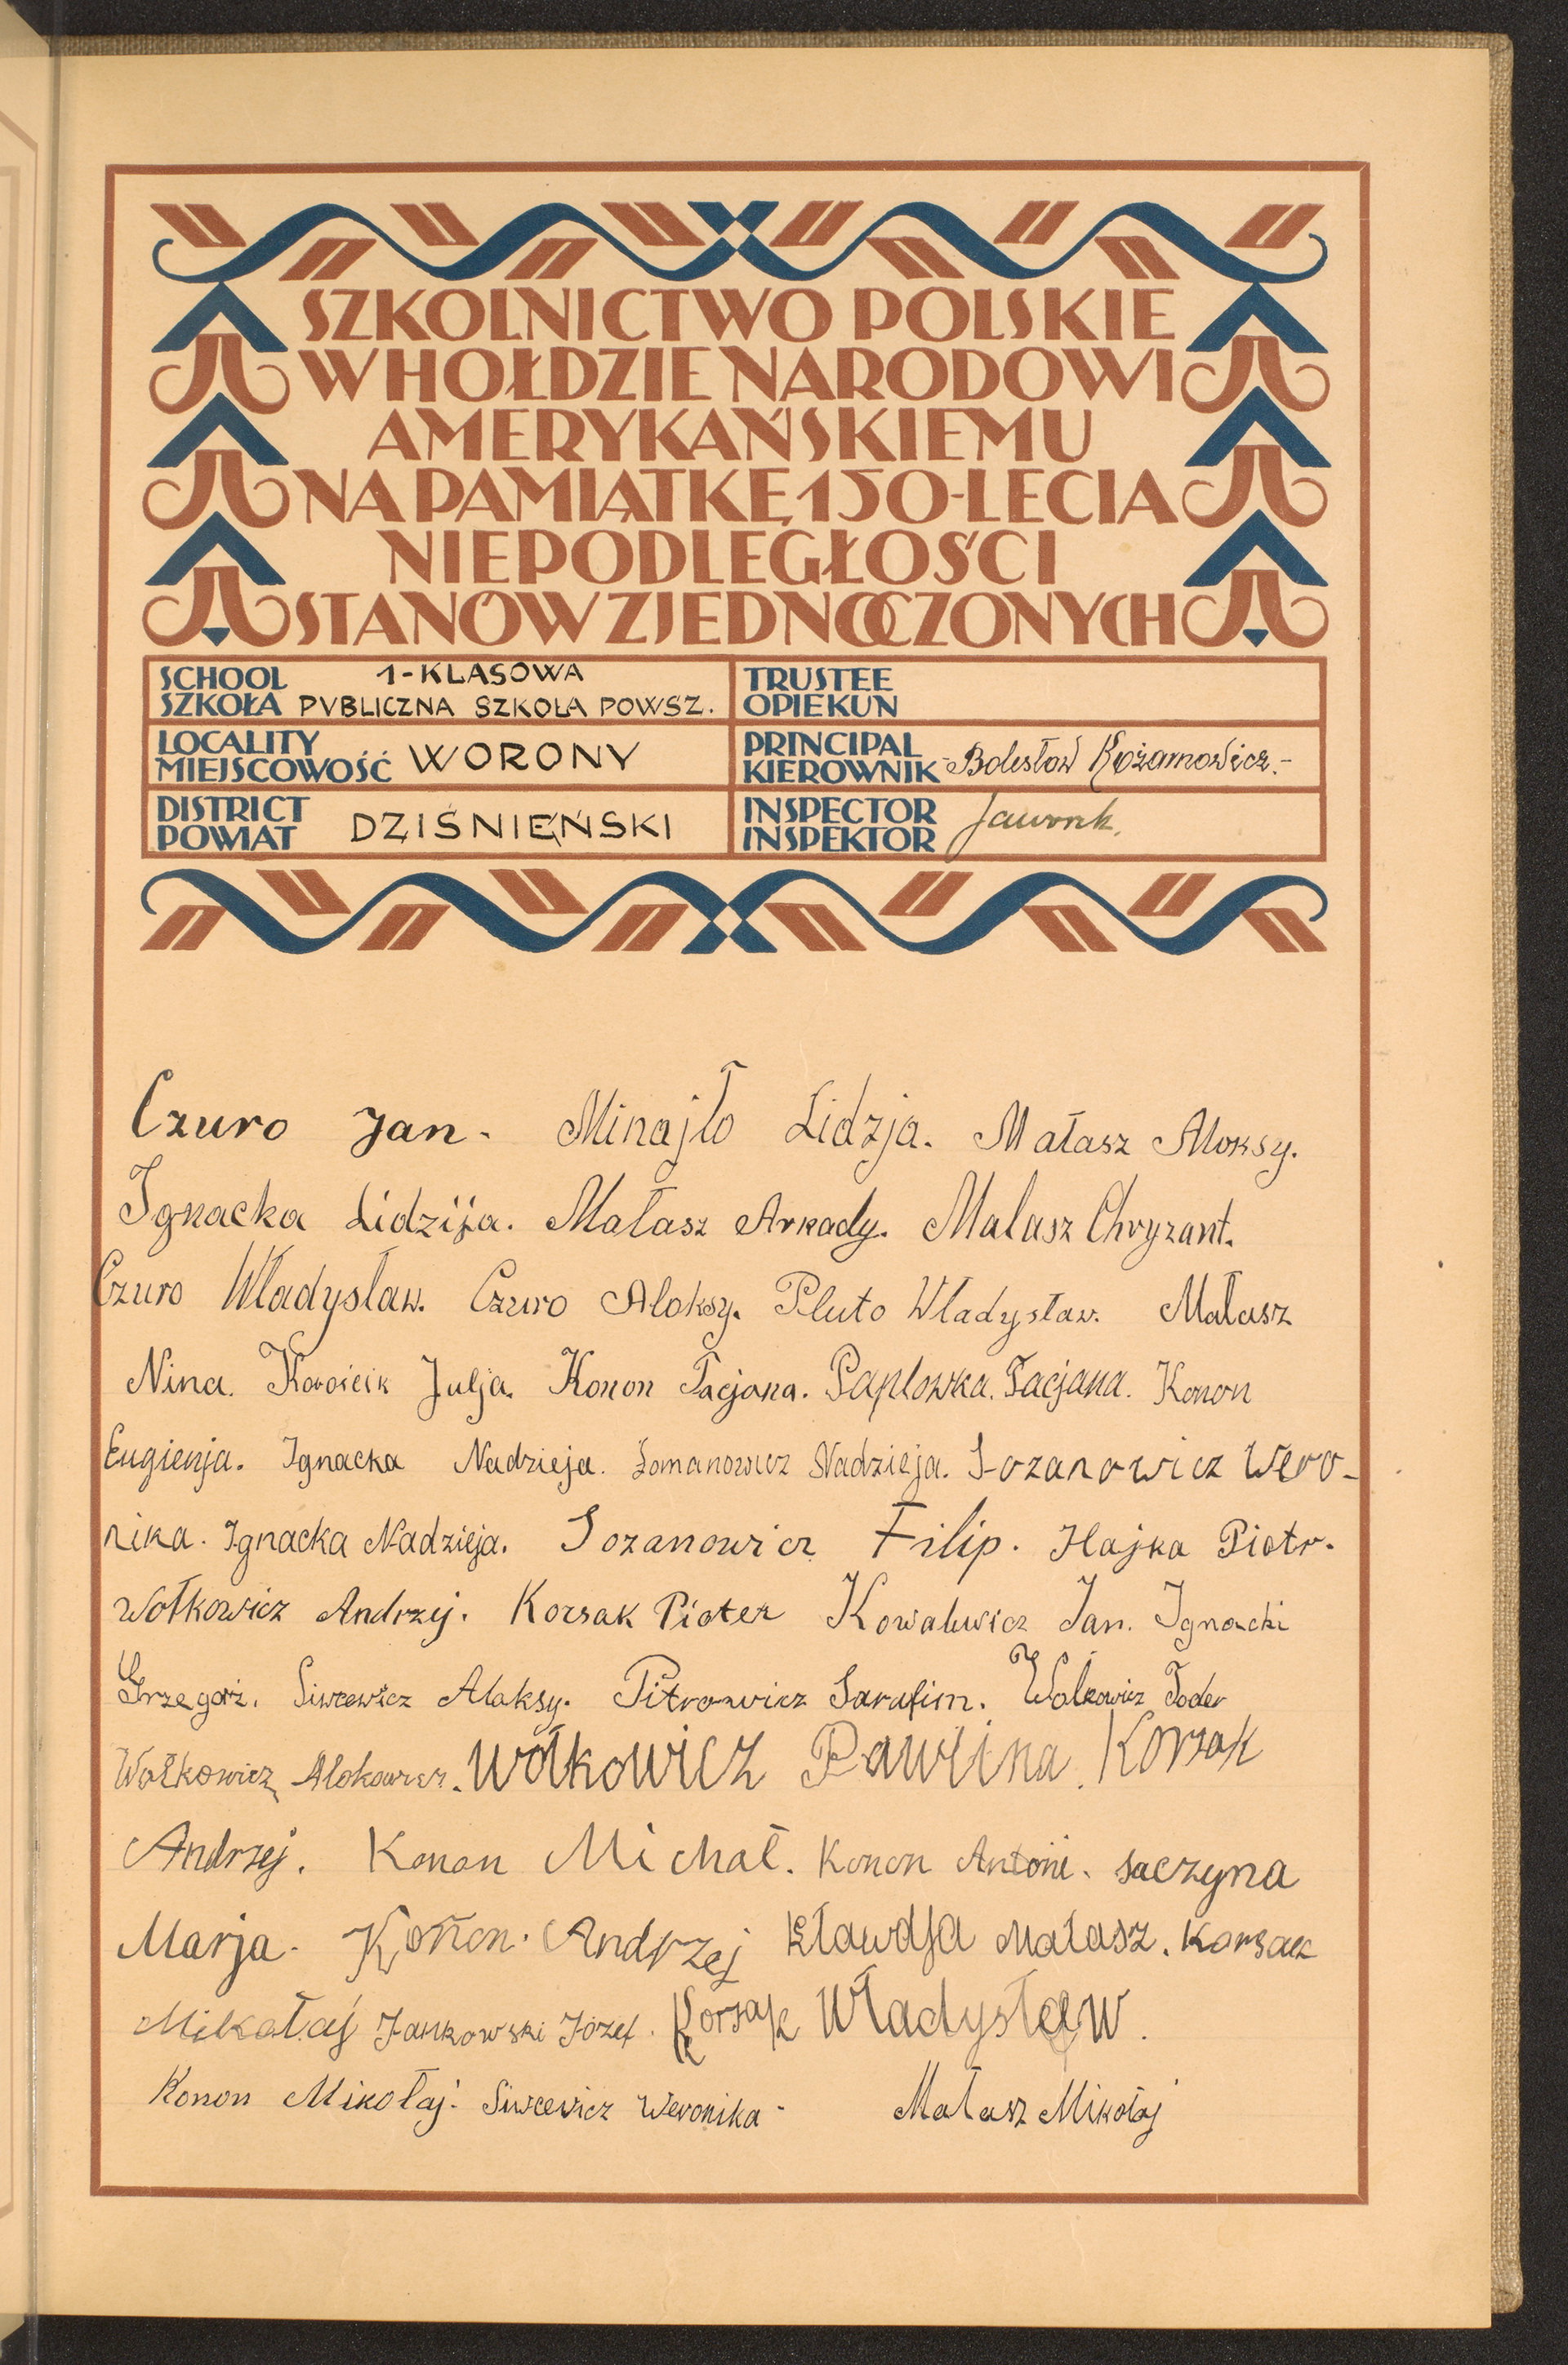 SZKOLNICTWO POLSKIE
W HOŁDZIE NARODOWI
AMERYKAŃSKIEMU
NA PAMIĄTKĘ 150-LECIA
NIEPODLEGŁOŚCI
STANÓW ZJEDNOCZONYCH
SCHOOL 1-KLASOWA
SZKOŁA PVBLICZNA SZKOŁA POWSZ.
TRUSTEE
OPIEKUN
LOCALITY
MIEJSCOWOŚĆ WORONY
PRINCIPAL
KIEROWNIK -Bolesław Rożamowicz.-
DISTRICT
POWIAT DZIŚNIEŃSKI
INSPECTOR
INSPEKTOR Jaworek.
Czuro Jan. Minajło Lidzja. Małasz Aloksy.
Ignacka Lidzija. Małasz Arkady. Małasz Chryzant.
Czuro Władysław. Czuro Aloksy. Pluto Władysław. Małasz
Nina. Korościk Julja. Konon Tacjana. Paplowka. Tacjana. Konon
Eugienja. Ignacka Nadzieja. Łomanowicz Nadzieja. Łozanowicz Wero-
nika. Ignacka Nadzieja. Łozanowicz Filip. Hajka Piotr.
Wołkowicz Andrzej. Korsak Pioter Kowalewicz Jan. Ignacki
Grzegorz. Siwcewicz Alaksy. Pitrowicz Sarafim. Wołkowicz Todor
Wołkowicz Wołkowicz Pawlina. Korsak
Andrzej. Konon Michał. Konon Antoni. Saczyna
Marja. Konon. Andrzej Kławdja Małasz. Korsak
Mikołaj Jankowski Józef. Korsak Władysław.
Konon Mikołaj. Siwcewicz Weronika- Małasz Mikołaj